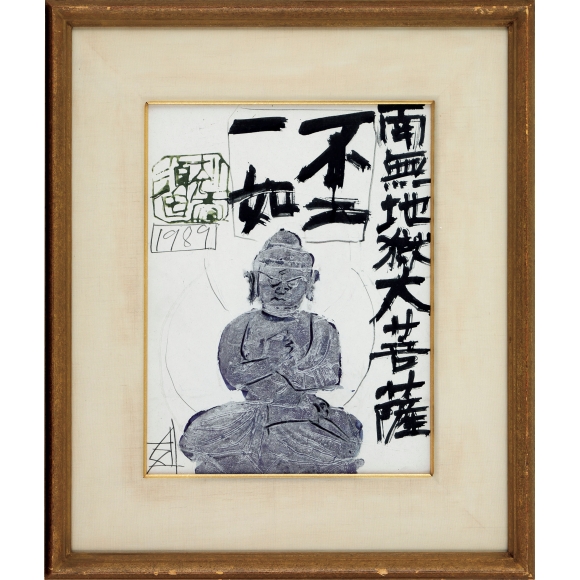 南無地獄大菩薩
不二
一如
1989